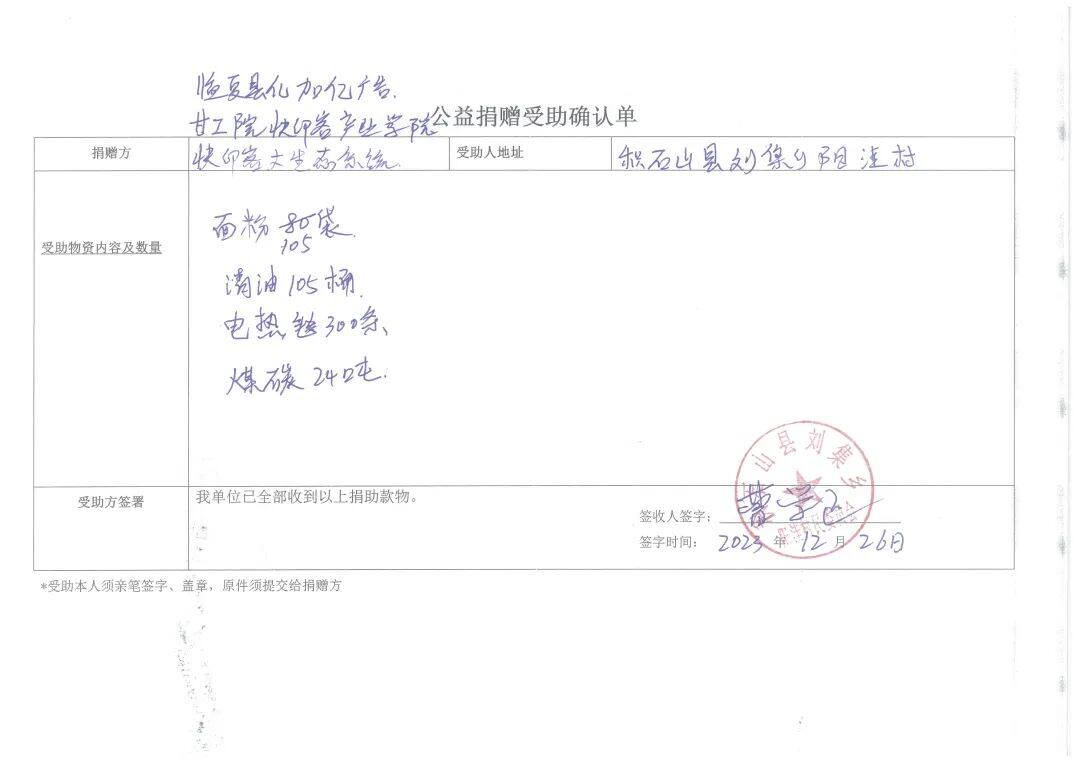 临夏县亿加亿广告.
甘工院快印客产业学院
公益捐赠受助确认单
捐赠方
快印客大生态系统
受助人地址
积石山县刘集乡阳洼村
受助物资内容及数量
面粉 80袋.
105
清油 105桶.
电热毯 300条、
煤碳 24吨.
山县刘集乡
受助方签署
我单位已全部收到以上捐助款物。
签收人签字:
签字时间: 2023 年 12 月 26日
*受助本人须亲笔签字、盖章，原件须提交给捐赠方